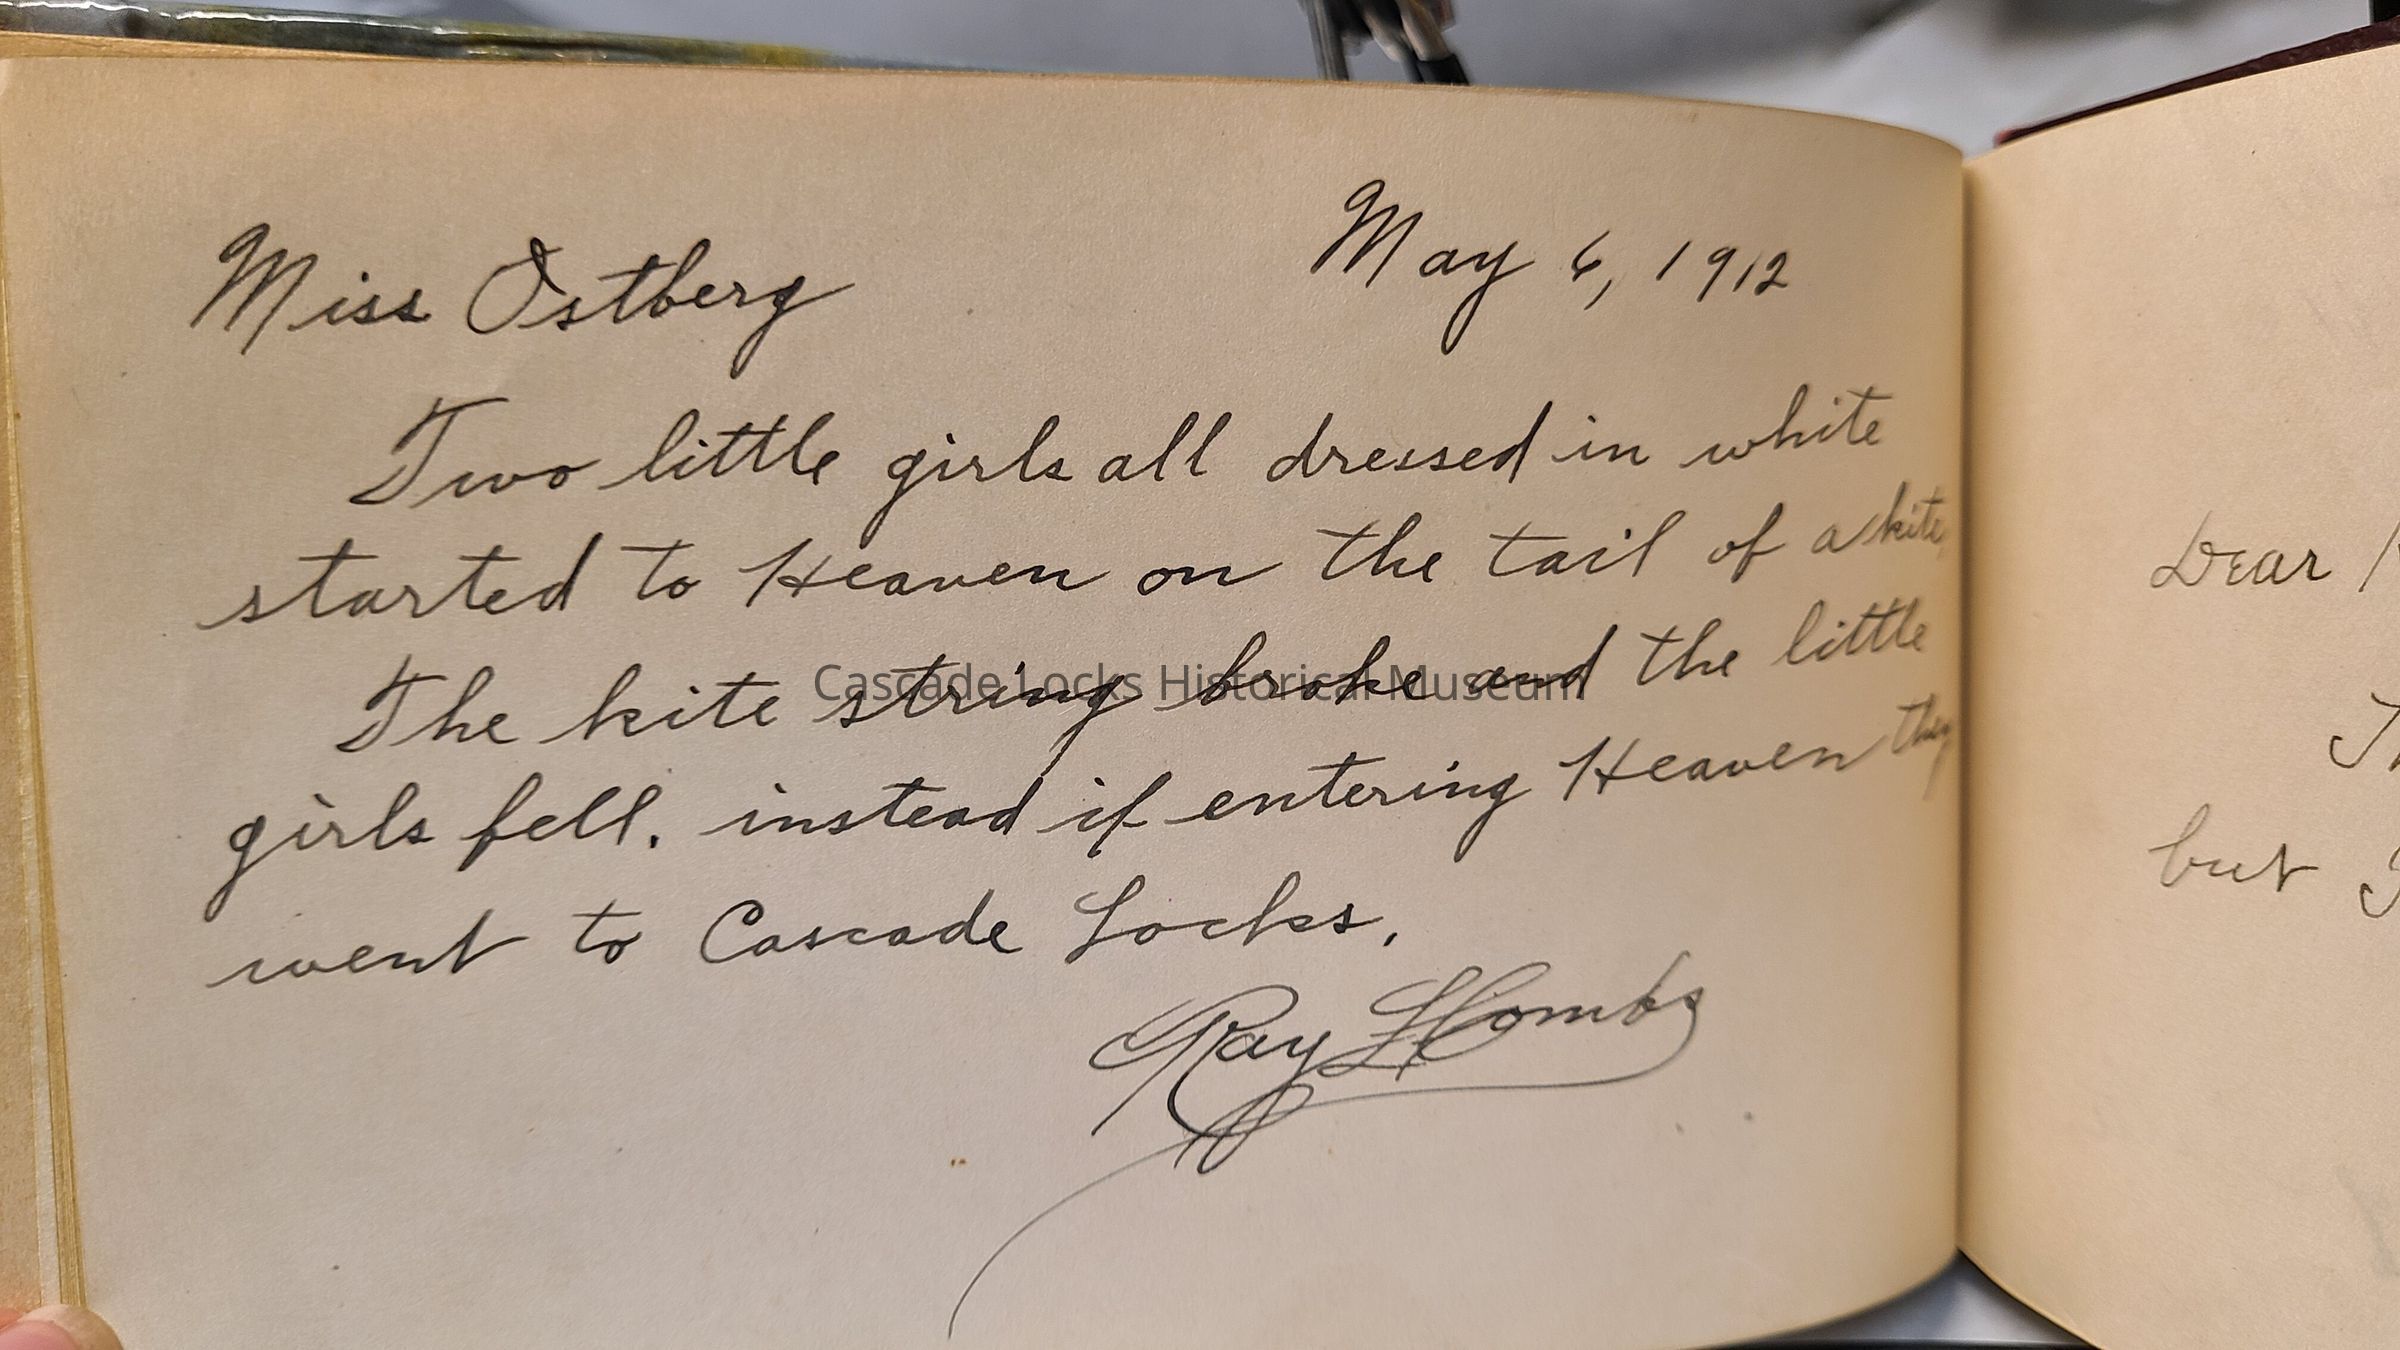 Miss Ostberg
May 6, 1912
Two little girls all dressed in white
started to Heaven on the tail of a kite,
The kite string broke and the little
girls fell. instead if entering Heaven they
went to Cascade Locks.
Ray L Combs
Cascade Locks Historical Museum
Dear
but